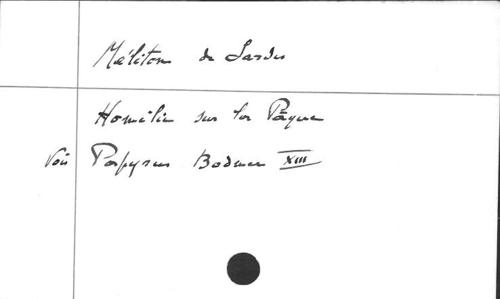 Méliton de Sardes
Homélie sur la Pâque
Voir Papyrus Bodmer XIII